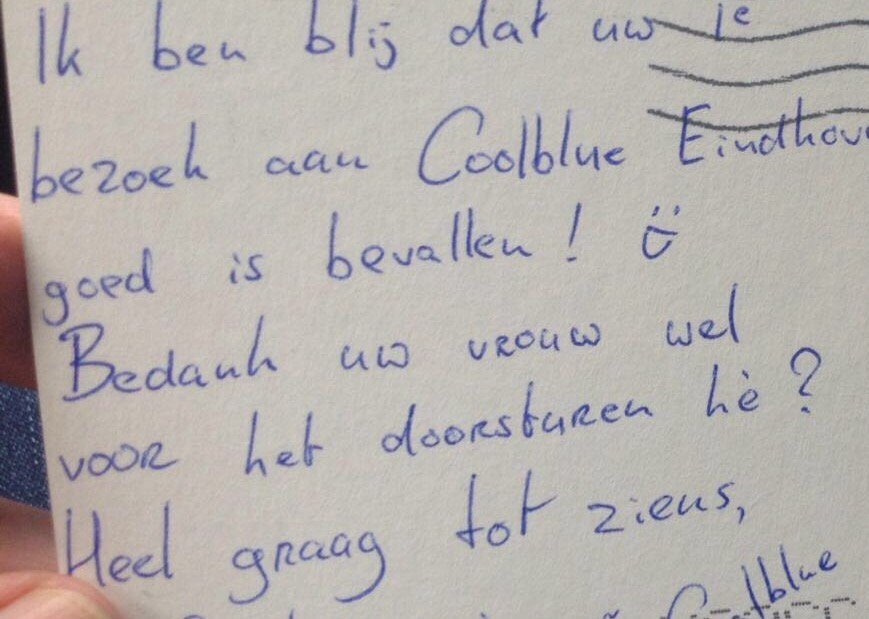 Ik ben blij dat uw 1e
bezoek aan Coolblue Eindhov
goed is bevallen! :D
Bedank uw vrouw wel
voor het doorsturen hè?
Heel graag tot ziens,
Coolblue